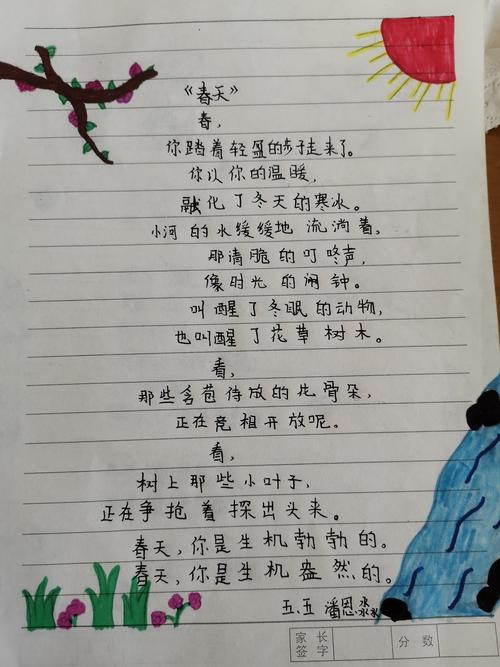 《春天》
春，
你踏着轻盈的步子走来了。
你以你的温暖，
融化了冬天的寒冰。
小河的水缓缓地流淌着，
那清脆的叮咚声，
像时光的闹钟。
叫醒了冬眠的动物，
也叫醒了花草树木。
看，
那些含苞待放的花骨朵，
正在竞相开放呢。
看，
树上那些小叶子，
正在争抢着探出头来。
春天，你是生机勃勃的。
春天，你是生机盎然的。
五.五 潘恩淼
家长签字 分数